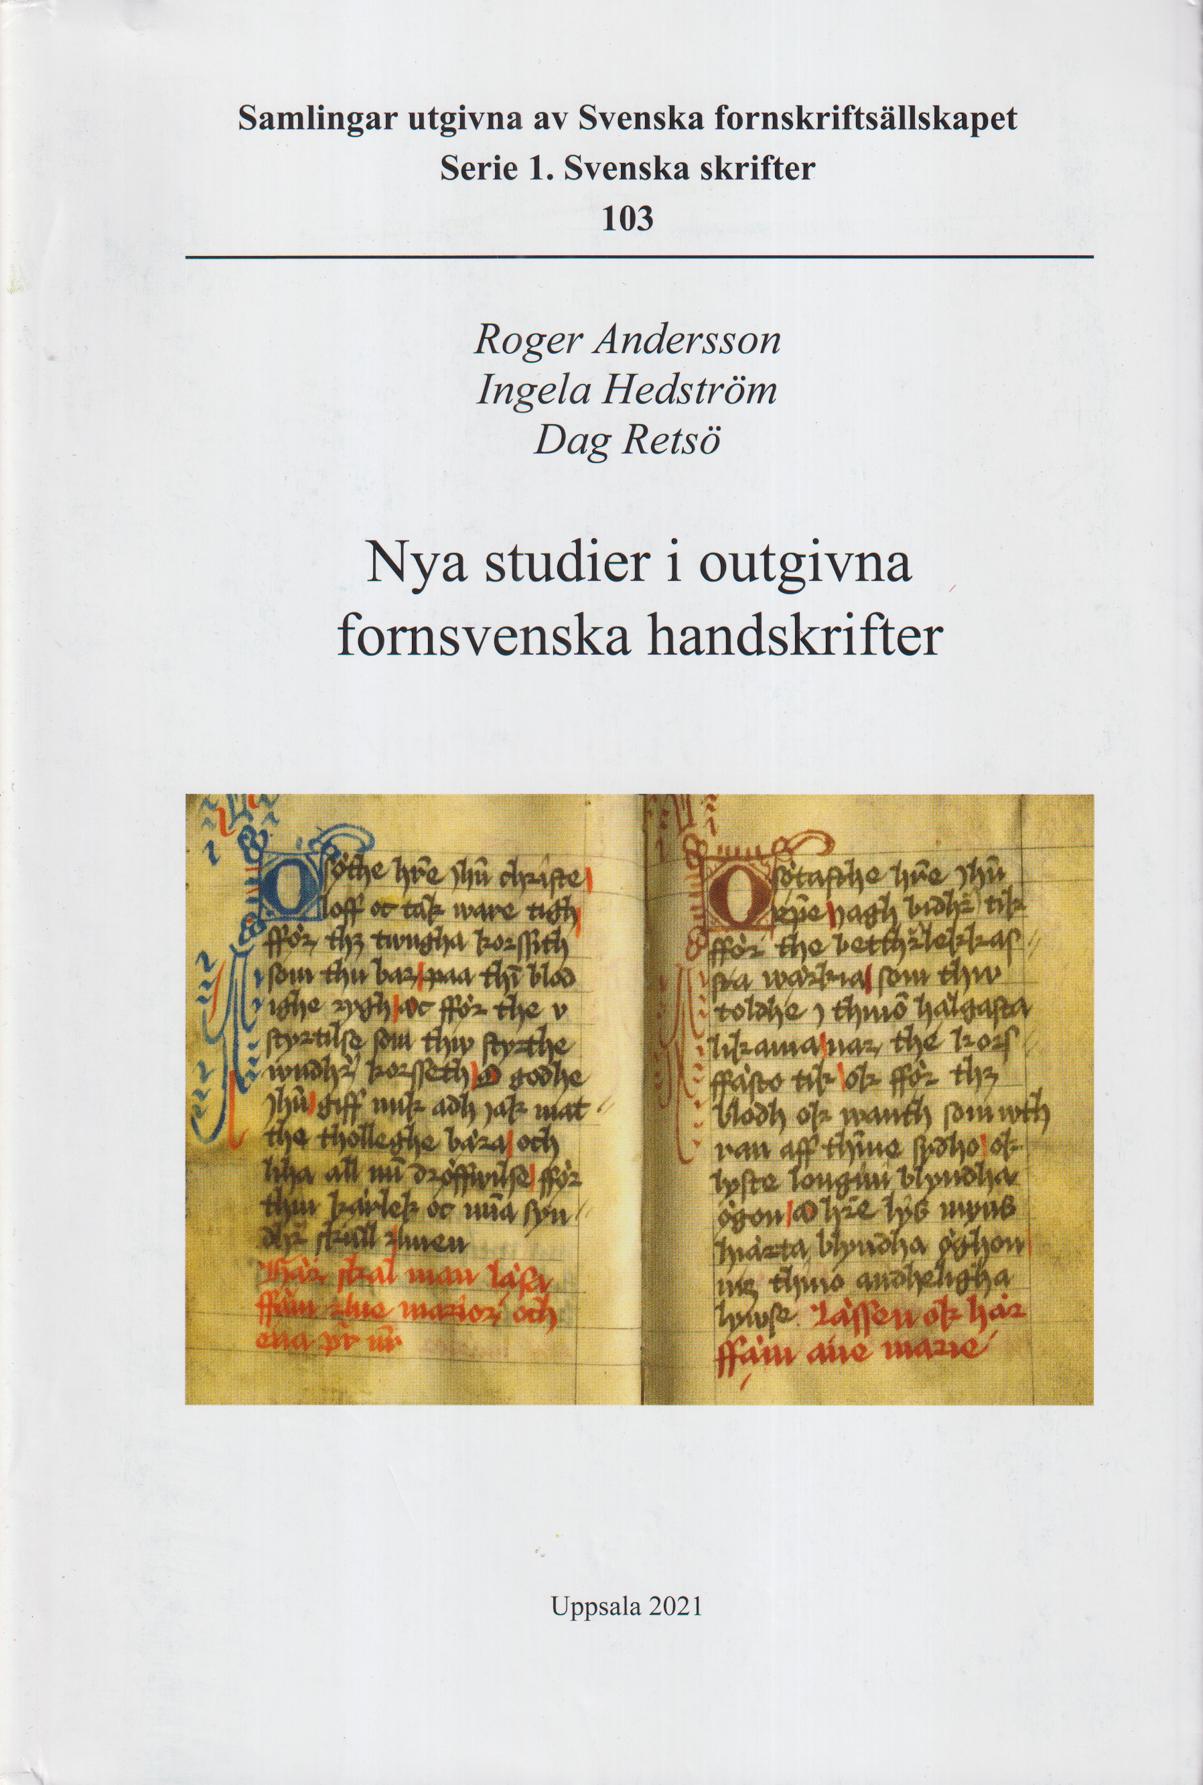 Samlingar utgivna av Svenska fornskriftsällskapet
Serie 1. Svenska skrifter
103
Roger Andersson
Ingela Hedström
Dag Retsö
Nya studier i outgivna
fornsvenska handskrifter
O søthe hr̄e jhū christe
loff oc tak ware tigh
ffør thz twngha korssith
som thu bar paa thī blod
ighe rygh oc ffør the v
styrtilse som thw styrthe
wndhr̄ korsseth O godhe
jhū giff mik adh jak mat
the tholleghe bæra och
lidha all mī drøffwilse ffør
thin kærlek oc mīa syn
dhr̄ skull amen
Hær skal man læsa
ffæm aue marior och
ena pr̄ nr̄
O søtasthe hr̄e jhū
xp̄e jagh bidhr̄ tik
ffør the betthrlekkas
ta wærkia som thw
toldhe j thino hælgasta
likama nar the kors
ffæsto tik ok ffør thz
blodh ok wanth som wth
ran aff thine sydho ok
lyste longini blyndha
øgon O hr̄e lys myns
hiærta blyndha øghon
mz thino andheligha
lywse Læssen ok hær
ffæm aue marie
Uppsala 2021